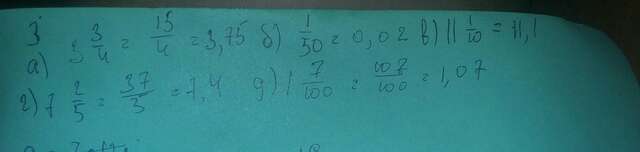 3
а) 3 3/4 = 15/4 = 3,75 б) 1/50 = 0,02 в) 11 1/10 = 11,1
г) 7 2/5 = 37/5 = 7,4 д) 1 7/100 = 107/100 = 1,07